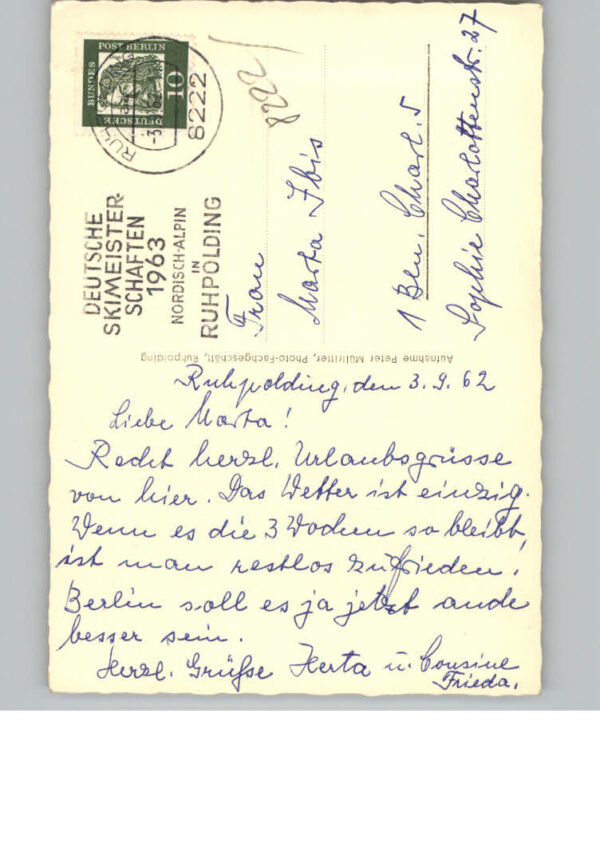 DEUTSCHE BUNDES POST BERLIN
10
-3.9.62
8222
8222
DEUTSCHE
SKIMEISTER-
SCHAFTEN
1963
NORDISCH-ALPIN
IN
RUHPOLDING
Frau
Marta Ibis
1 Bln. Charl. 5
Sophie Charlottenstr. 27
Aufnahme Peter Müllritter, Photo-Fachgeschäft, Ruhpolding
Ruhpolding, den 3.9.62
Liebe Marta!
Recht herzl. Urlaubsgrüsse
von hier. Das Wetter ist einzig.
Wenn es die 3 Wochen so bleibt,
ist man restlos zufrieden.
Berlin soll es ja jetzt auch
besser sein.
Herzl. Grüße Herta u. Cousine
Frieda.